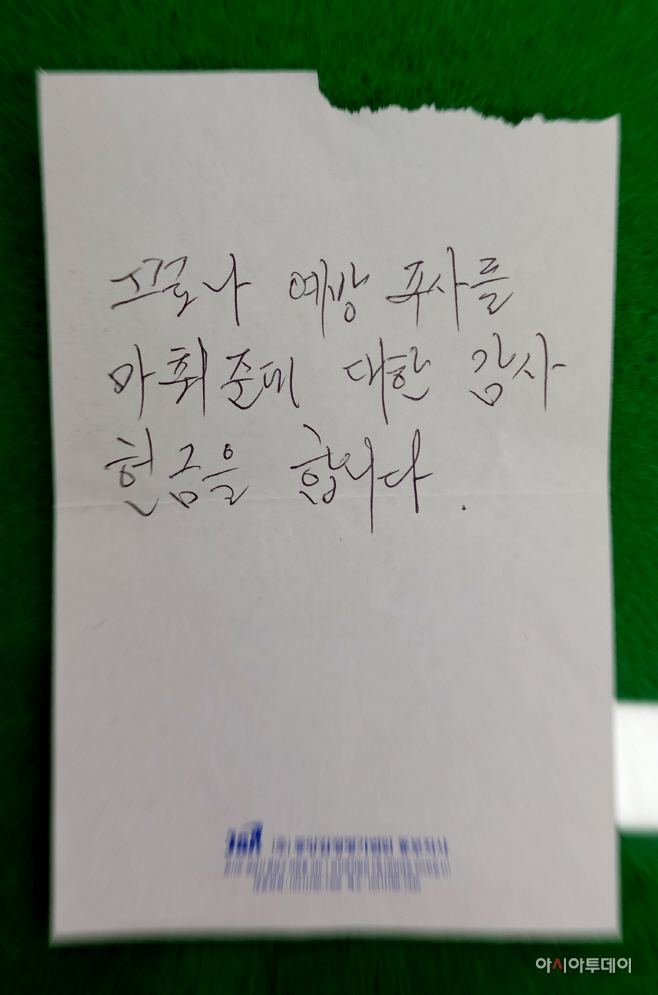 코로나 예방 주사를
마춰준데 대한 감사
헌금을 합니다.
아시아투데이